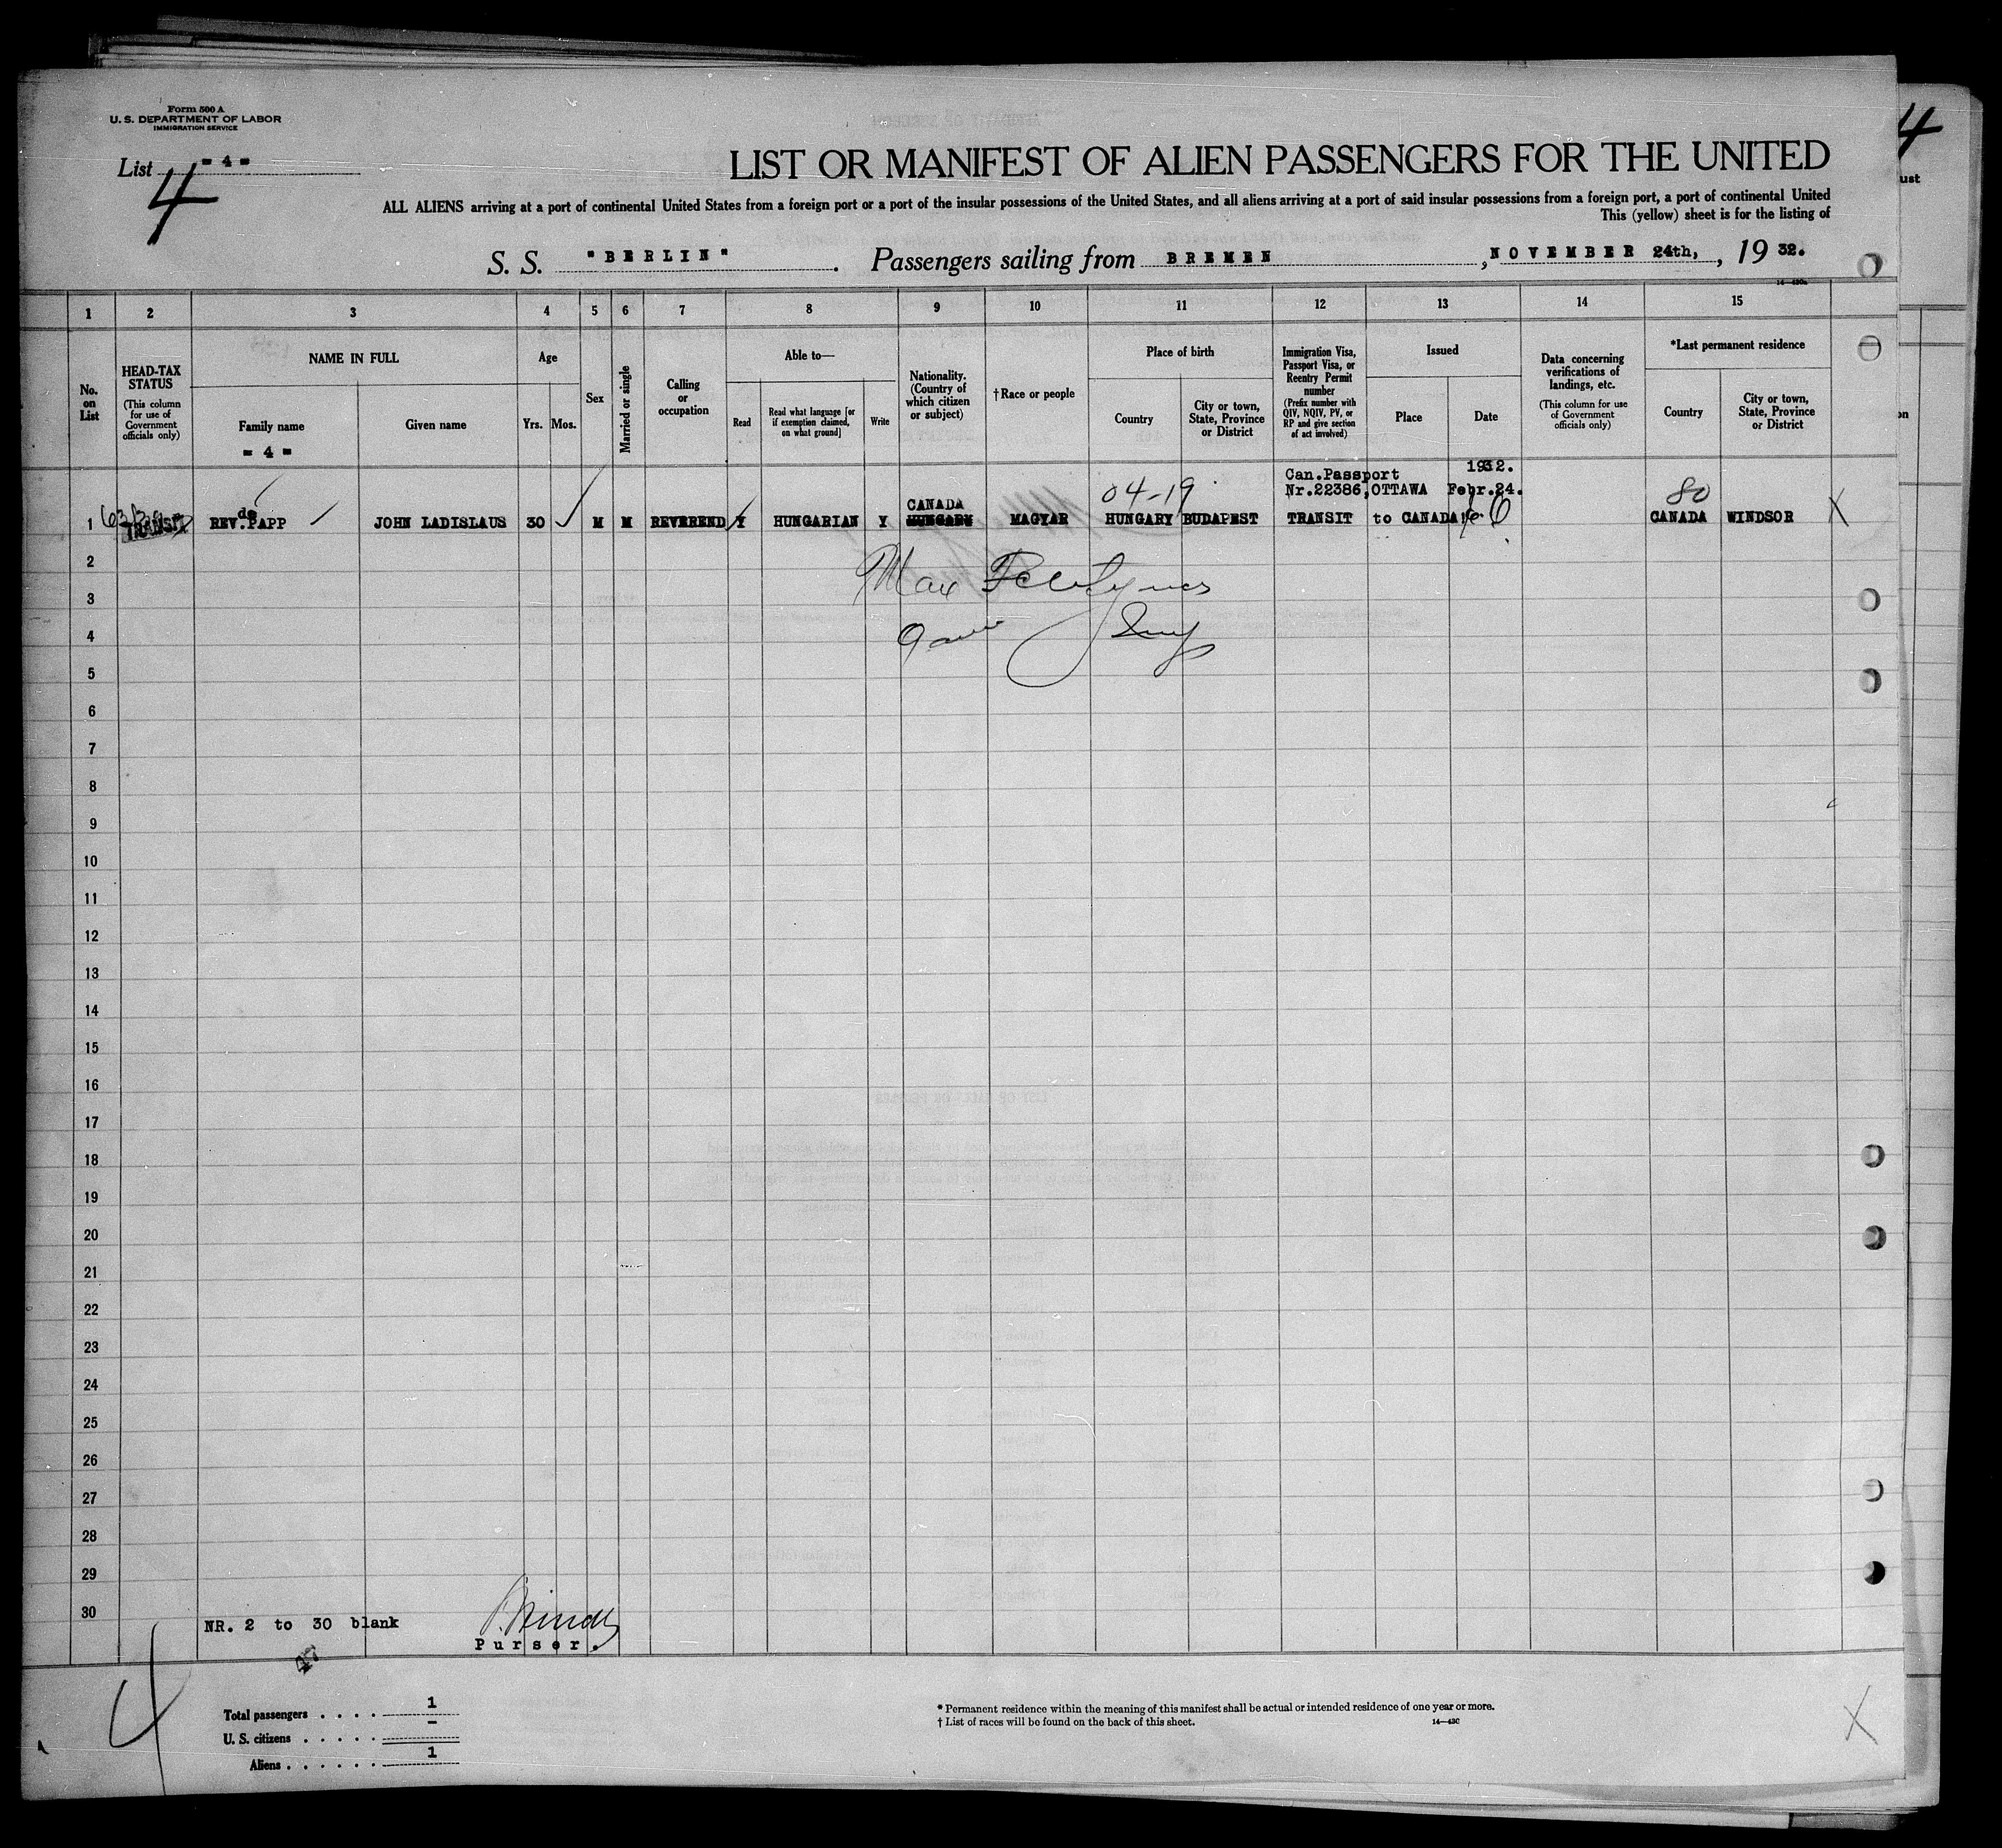 Form 500 A
U. S. DEPARTMENT OF LABOR
IMMIGRATION SERVICE
List = 4 =
4
LIST OR MANIFEST OF ALIEN PASSENGERS FOR THE UNITED
ALL ALIENS arriving at a port of continental United States from a foreign port or a port of the insular possessions of the United States, and all aliens arriving at a port of said insular possessions from a foreign port, a port of continental United
This (yellow) sheet is for the listing of
S. S. "BERLIN". Passengers sailing from BREMEN, NOVEMBER 24th, , 19 32.
1 2 3 4 5 6 7 8 9 10 11 12 13 14 15
No. on List
HEAD-TAX STATUS
(This column for use of Government officials only)
NAME IN FULL
Family name
= 4 =
Given name
Age
Yrs. Mos.
Sex
Married or single
Calling or occupation
Able to—
Read
Read what language [or if exemption claimed, on what ground]
Write
Nationality. (Country of which citizen or subject)
†Race or people
Place of birth
Country
City or town, State, Province or District
Immigration Visa, Passport Visa, or Reentry Permit number
(Prefix number with QIV, NQIV, PV, or RP and give section of act involved)
Issued
Place
Date
Data concerning verifications of landings, etc.
(This column for use of Government officials only)
*Last permanent residence
Country
City or town, State, Province or District
1932.
Can.Passport
Nr.22386,OTTAWA Febr.24.
04-19
80
CANADA
de
1 TRANSIT REV.PAPP JOHN LADISLAUS 30 M M REVEREND Y HUNGARIAN Y HUNGARY MAGYAR HUNGARY BUDAPEST TRANSIT to CANADA CANADA WINDSOR X
2
Max
3
4
5
6
7
8
9
10
11
12
13
14
15
16
17
18
19
20
21
22
23
24
25
26
27
28
29
30
NR. 2 to 30 blank
Purser.
4
Total passengers . . . . 1
U. S. citizens . . . . . –
Aliens . . . . . . 1
* Permanent residence within the meaning of this manifest shall be actual or intended residence of one year or more.
† List of races will be found on the back of this sheet.
14—430
X
4
ust
on